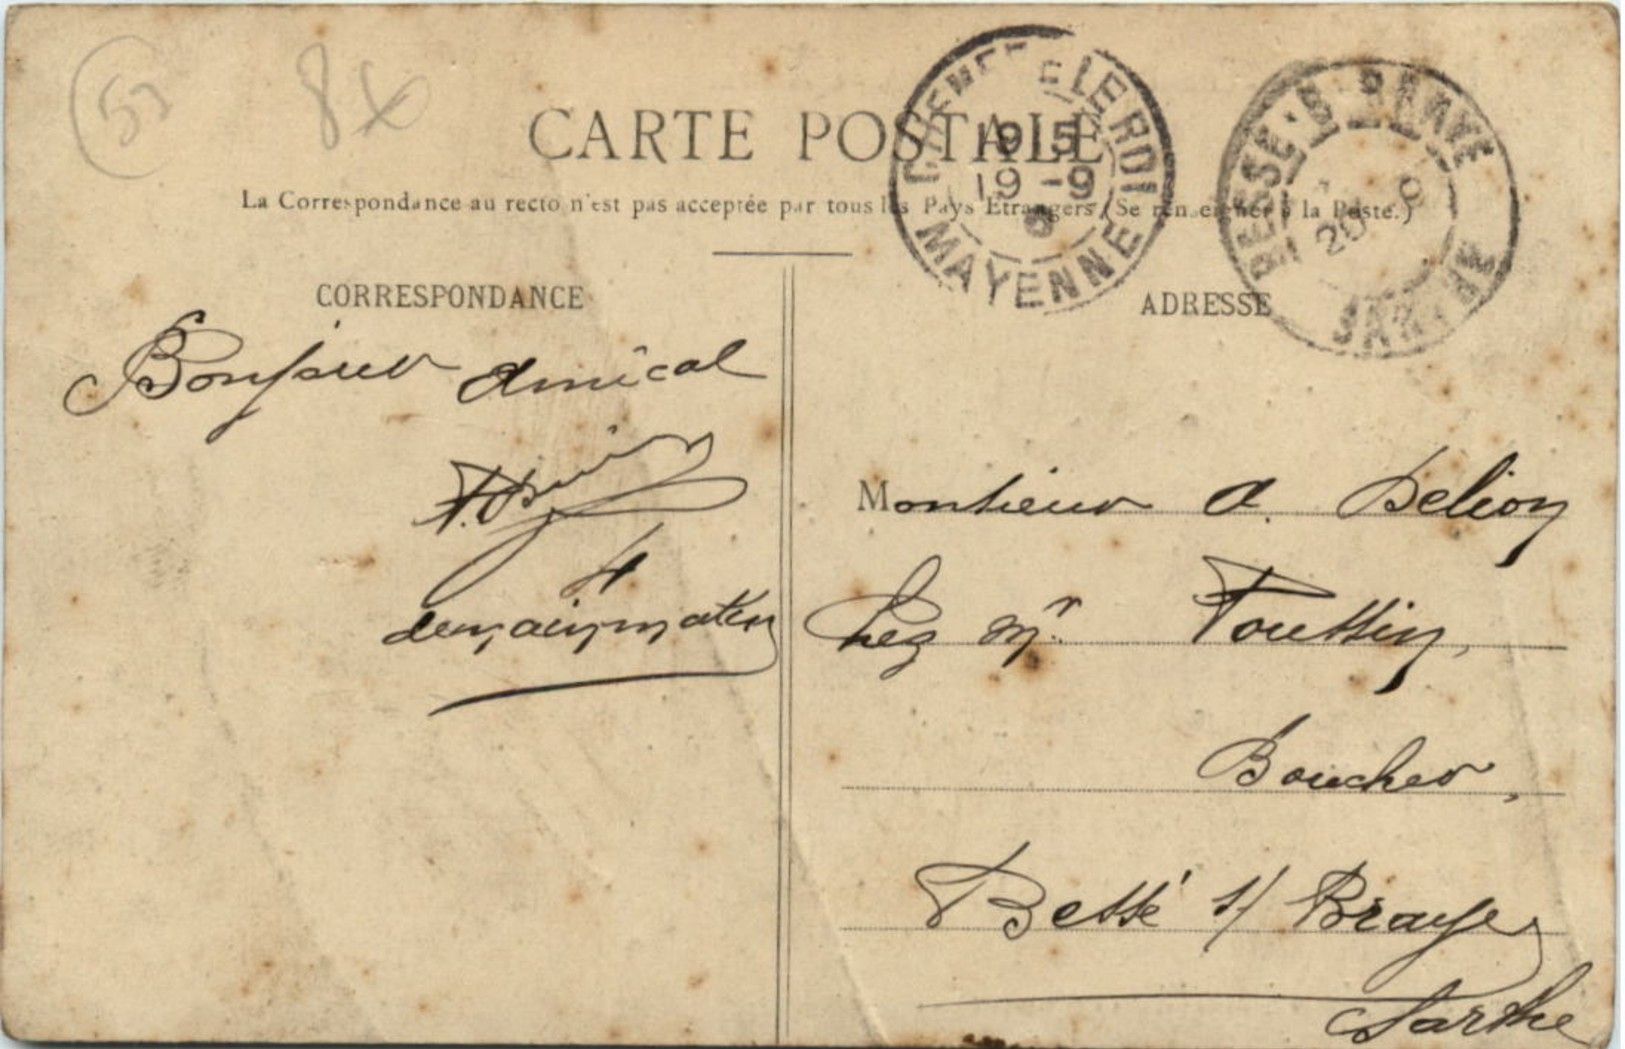 53
8x
CARTE POSTALE
La Correspondance au recto n'est pas acceptée par tous les Pays Etrangers (Se renseigner à la Poste.)
LE ROI
MAYENNE
15
19 - 9
BESSÉ-S-BRAYE
20 9
SARTHE
CORRESPONDANCE
Bonjour amical
demain matin
ADRESSE
Monsieur A. Delion
Chez Mr. Toussin,
Boucher,
Bessé s/ Braye
Sarthe